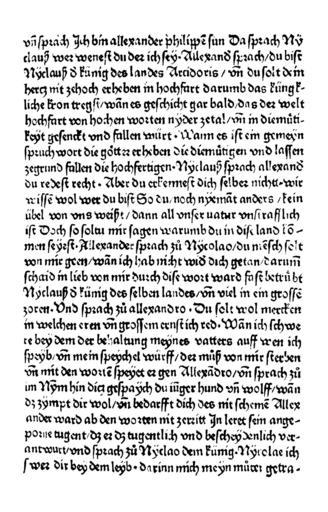 vñ sprach Ich bin allexander philippẽ sun Da sprach Ny
clauß wer wenest du der ich sey. Allexand sprach/du bist
Nyclauß d künig des landes Arridoris/ vñ du solt dein
hercz mit zehoch erheben in hochfart darumb das küngk⸗
liche kron tregst/wañ es geschicht gar bald/das der welt
hochfart von hochen worten nyder zetal/vñ in diemüti⸗
keyt gesenckt vnd fallen würt. Wann es ist ein gemeyn
spruch wort die götter erheben die diemütigen vnd lassen
zegrund fallen die hochfertigen. Nyclauß sprach allexand
du redest recht. Aber du erkennest dich selber nicht. wir
wissẽ wol wer du bist So du/noch nyemãt anders/kein
übel von vns weißt/dann all vnser natur vnstrafflich
ist Doch so soltu mir sagen warumb du in diß land ko⸗
men seyest. Allexander sprach zu Nycolao/du mẽsch solt
von mir geen/wañ ich hab nicht wid dich getan/darum̃
schaid in lieb von mir durch dise wort ward fast betrübt
Nyclauß d künig des selben landes/vñ viel in ein grossẽ
zoren. Vnd sprach zu allexandro. Du solt wol mercken
in welchen eren vñ grossem ernst ich red. Wañ ich schwe
re bey dem der behaltung meynes vatters auff wen ich
speyb/vñ mein speychel würff/der můß von mir sterben
vñ mit den worten speyet er gen Allexãdro/vñ sprach zu
im Nym hin dicz gespaych du iunger hund vñ wolff/wañ
dz zympt dir wol/vñ bedarfft dich des nit schemẽ Allex
ander ward ab den worten nit zerzitt In leret sein ange⸗
porne tugent/dz er dz tugentlich vnd bescheydenlich ver⸗
antwurt/vnd sprach zu Nyclao dem künig. Nycolae ich
swer dir bey dem leyb. darinn mich meyn můter getra⸗